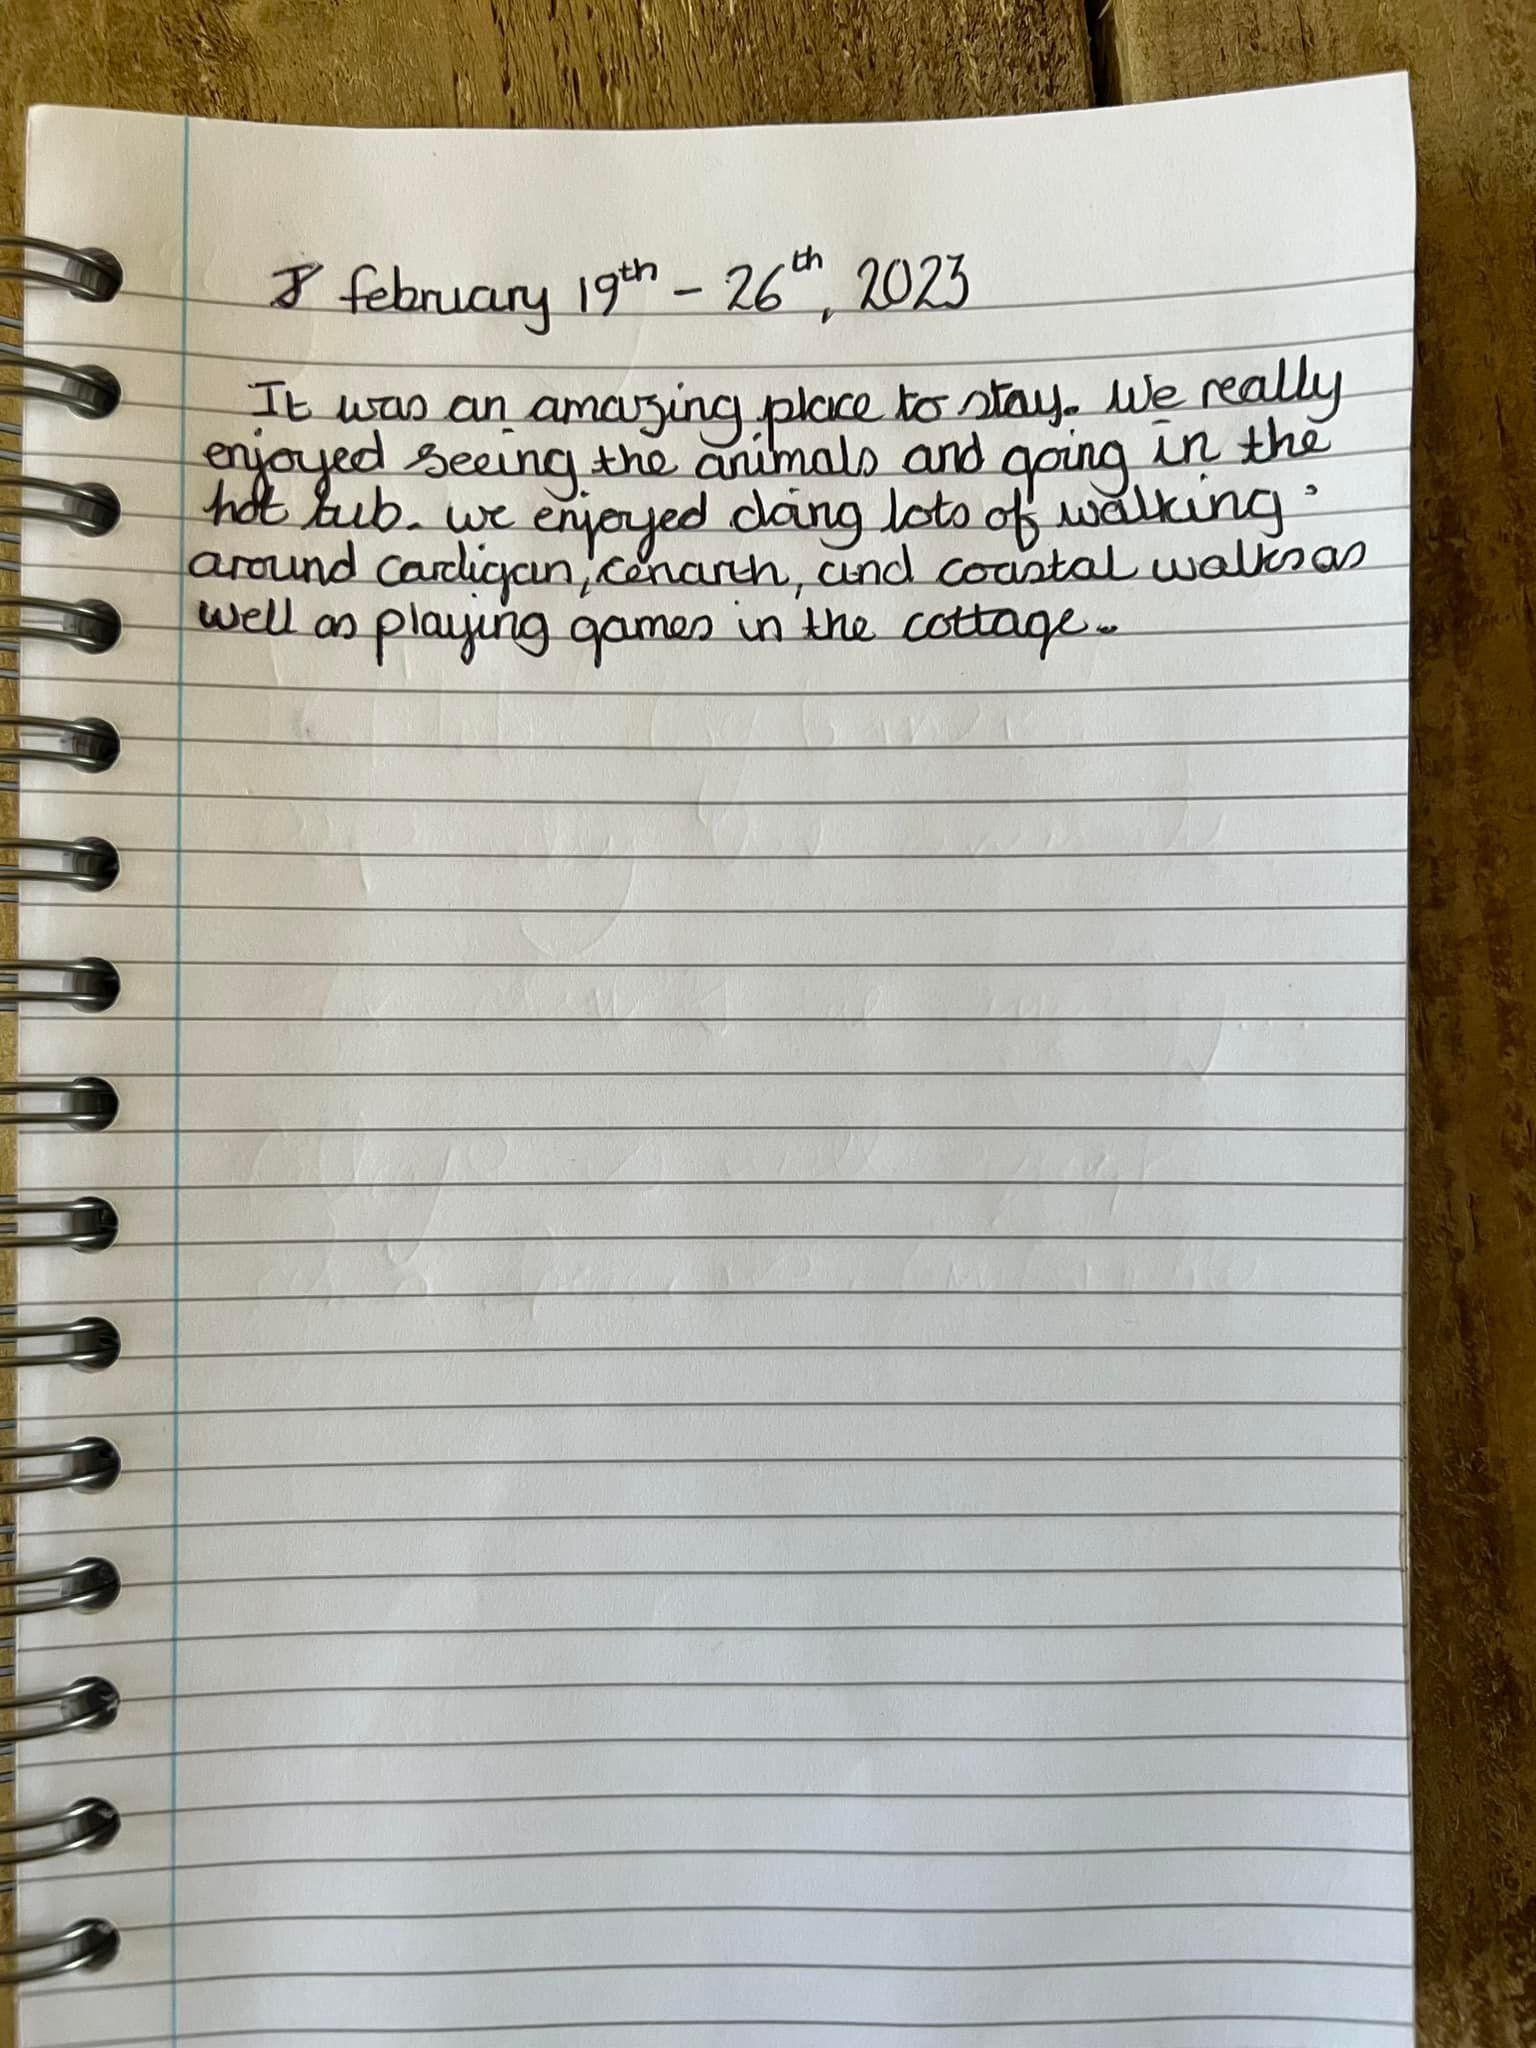 february 19th - 26th, 2023
It was an amazing place to stay. We really
enjoyed seeing the animals and going in the
hot tub. we enjoyed doing lots of walking
around cardigan, cenarth, and coastal walks as
well as playing games in the cottage.